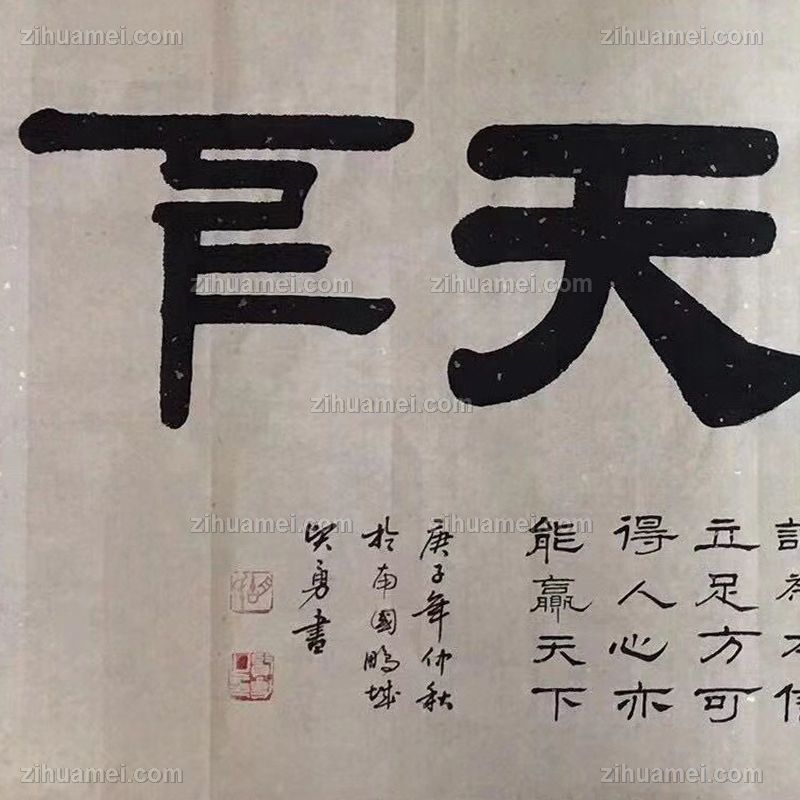 天
為本
立足方可
得人心亦
能贏天下
庚子年仲秋
於南國鵬城
勇書
zihuamei.com
zihuamei.com
zihuamei.com
zihuamei.com
zihuamei.com
zihuamei.com
zihuamei.com
zihuamei.com
zihuamei.com
zihuamei.com
zihuamei.com
zihuamei.com